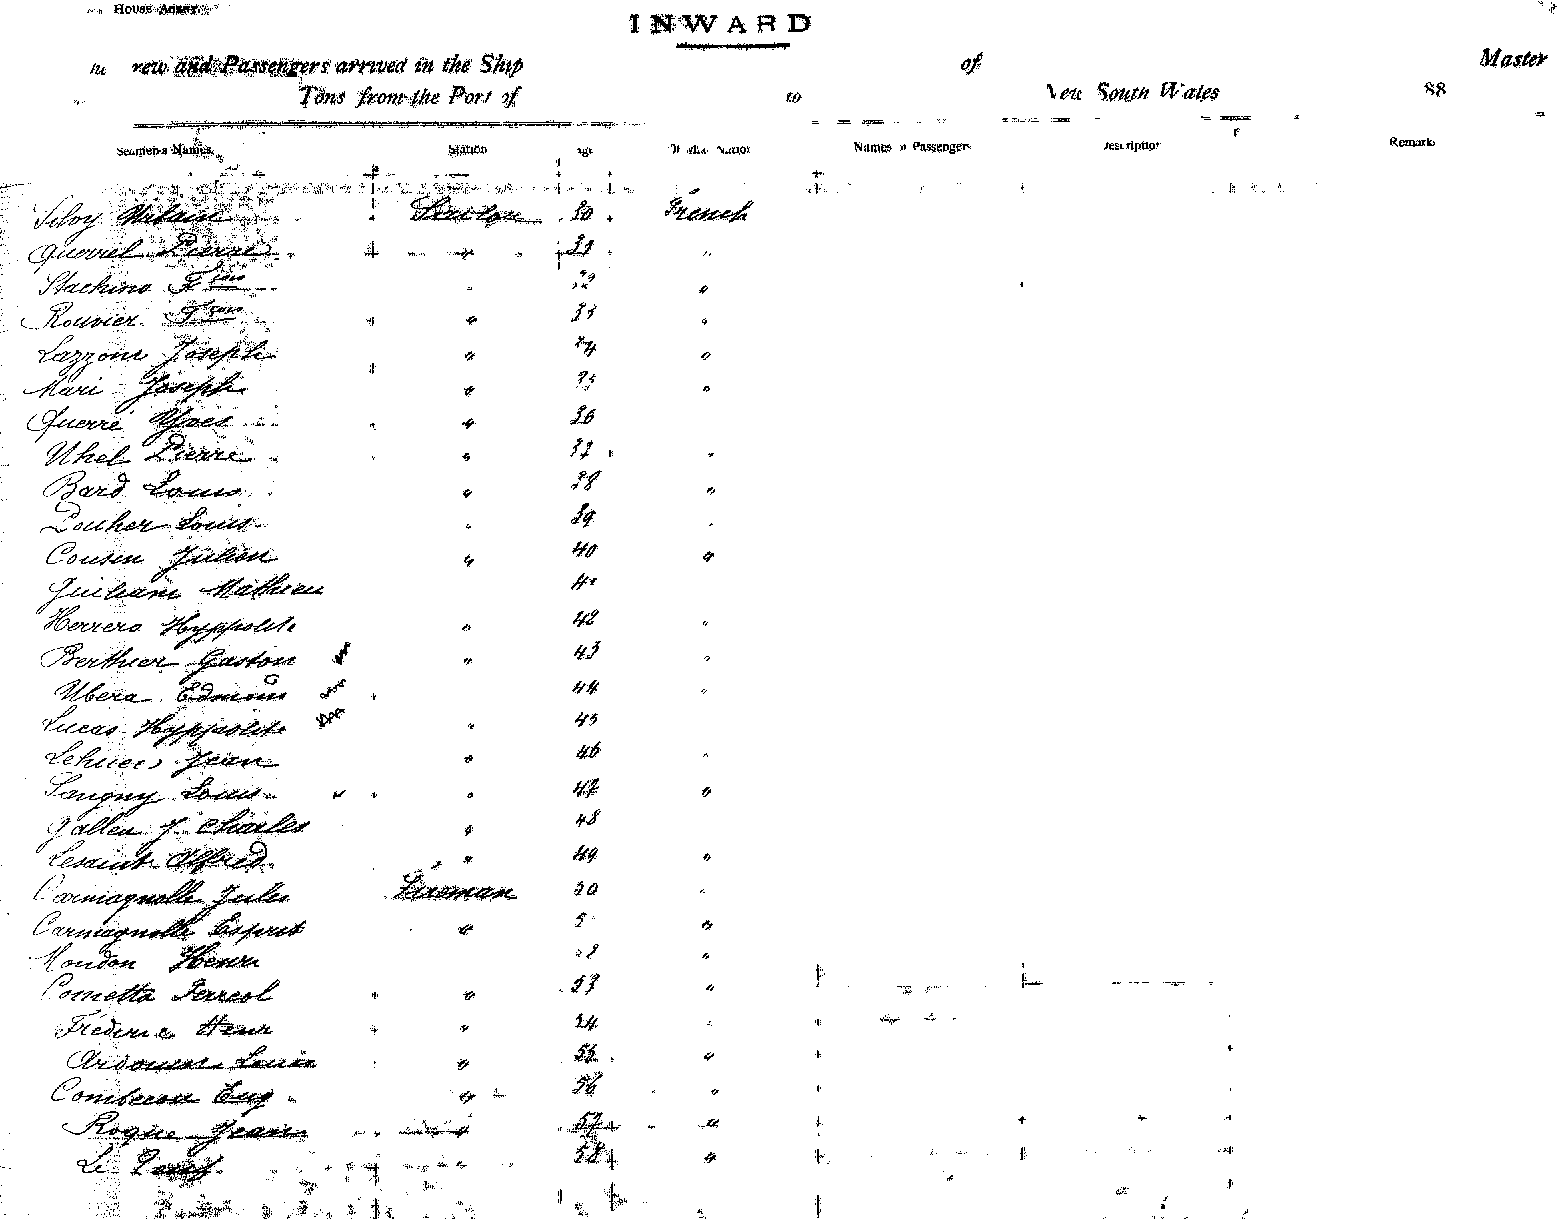 House
INWARD
rew and Passengers arrived in the Ship of Master
Tons from the Port of to New South Wales 88
Seamen's Names Station Age Of what Nation Names of Passengers Description Remarks
Silvy Urbain 30 French
Querrel Pierre 31 "
Stachino Fçois "
Rouvier Fçois " 33 "
Lazzoni Joseph " "
Mari Joseph " 35 "
Querré Yves " 36
Uhel Pierre " 37 "
Bard Louis " 38 "
Douher Louis " 39 "
Cousin Julien " 40 "
Giuliani Mathieu
Herrero Hyppolite " 42 "
Berthier Gaston " 43 "
Ubera Edmond 44 "
Lucas Hyppolite " 45
Jean " 46 "
Louis " 47 "
Gallen J. Charles " 48
Alfred " 49 "
Carmagnolle Jules Fireman 50 "
Carmagnolle Esprit " "
Mondon Henri "
Cometta Ferreol " 53 "
Frederic Henri " 54 "
Louis " 55 "
Eug " 56 "
Roque Jean " 57 "
Le 58 "